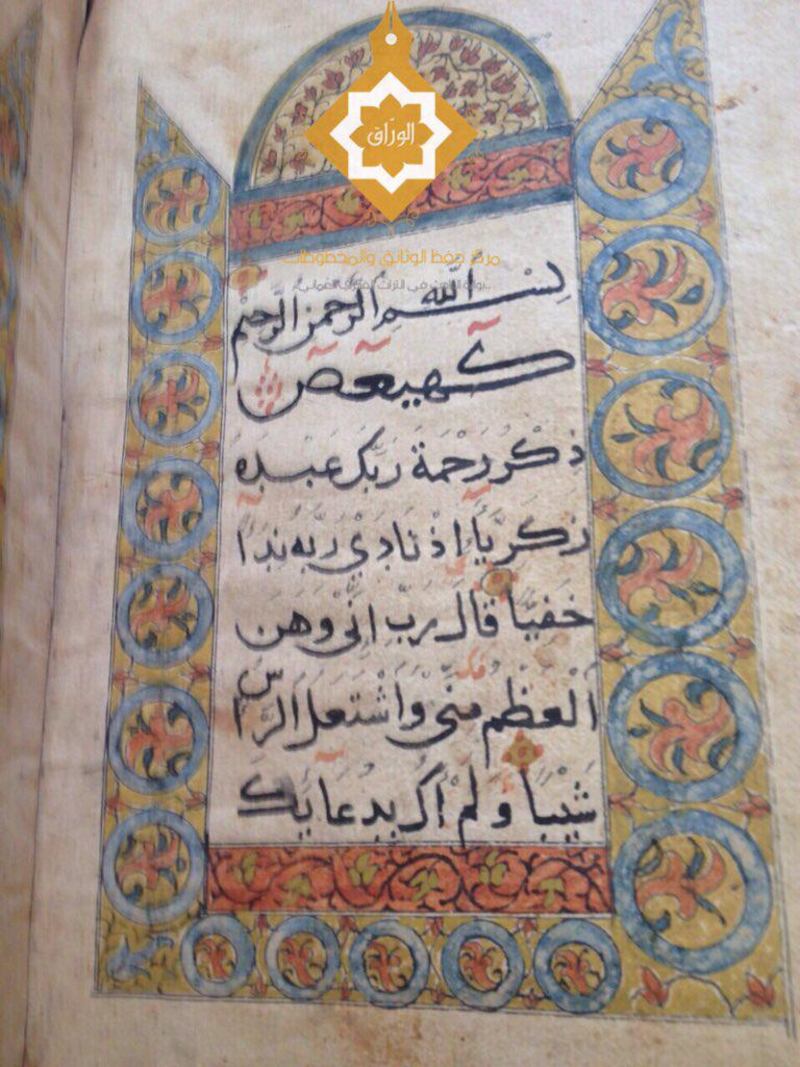 الورّاق
مركز حفظ الوثائق والمخطوطات
بسم الله الرحمن الرحيم
كهيعص
ذكر رحمة ربك عبده
زكريّا اذ نادي ربه ندا
خفيّا قال ربّ انّي وهن
العظم منّي واشتعل الرّاس
شيبا ولم اكن بدعايك